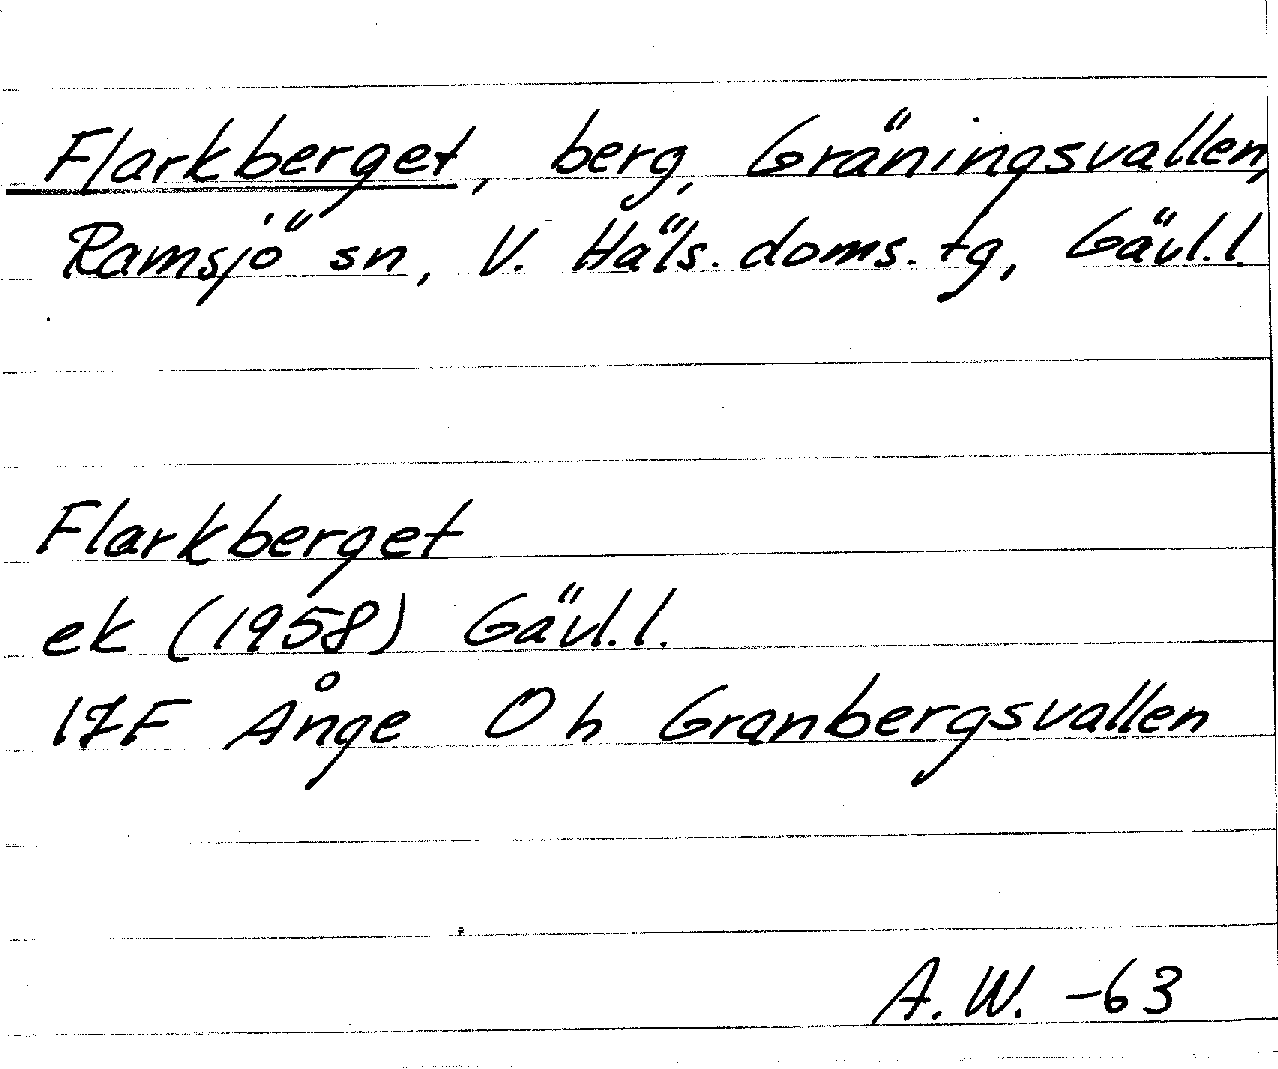 Flarkberget, berg, Gräningsvallen,
Ramsjö sn, V. Häls. doms. tg, Gävl.l.
Flarkberget
ek (1958) Gävl.l.
17F Ånge O h Granbergsvallen
A.W. -63